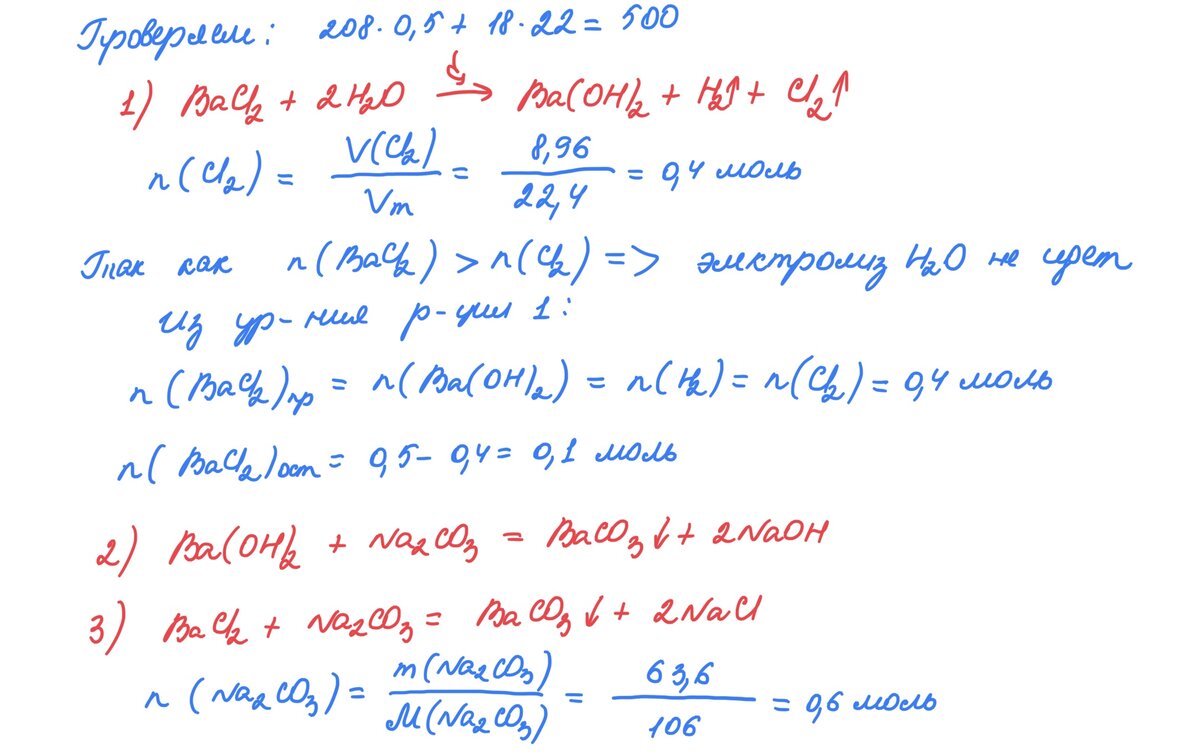 Проверяем: 208·0,5 + 18·22 = 500
1) BaCl₂ + 2H₂O →(эл. ток) Ba(OH)₂ + H₂↑ + Cl₂↑
n(Cl₂) = V(Cl₂)/Vm = 8,96/22,4 = 0,4 моль
Так как n(BaCl₂) > n(Cl₂) => электролиз H₂O не идет
Из ур-ния р-ции 1:
n(BaCl₂)пр = n(Ba(OH)₂) = n(H₂) = n(Cl₂) = 0,4 моль
n(BaCl₂)ост = 0,5 - 0,4 = 0,1 моль
2) Ba(OH)₂ + Na₂CO₃ = BaCO₃↓ + 2NaOH
3) BaCl₂ + Na₂CO₃ = BaCO₃↓ + 2NaCl
n(Na₂CO₃) = m(Na₂CO₃)/M(Na₂CO₃) = 63,6/106 = 0,6 моль